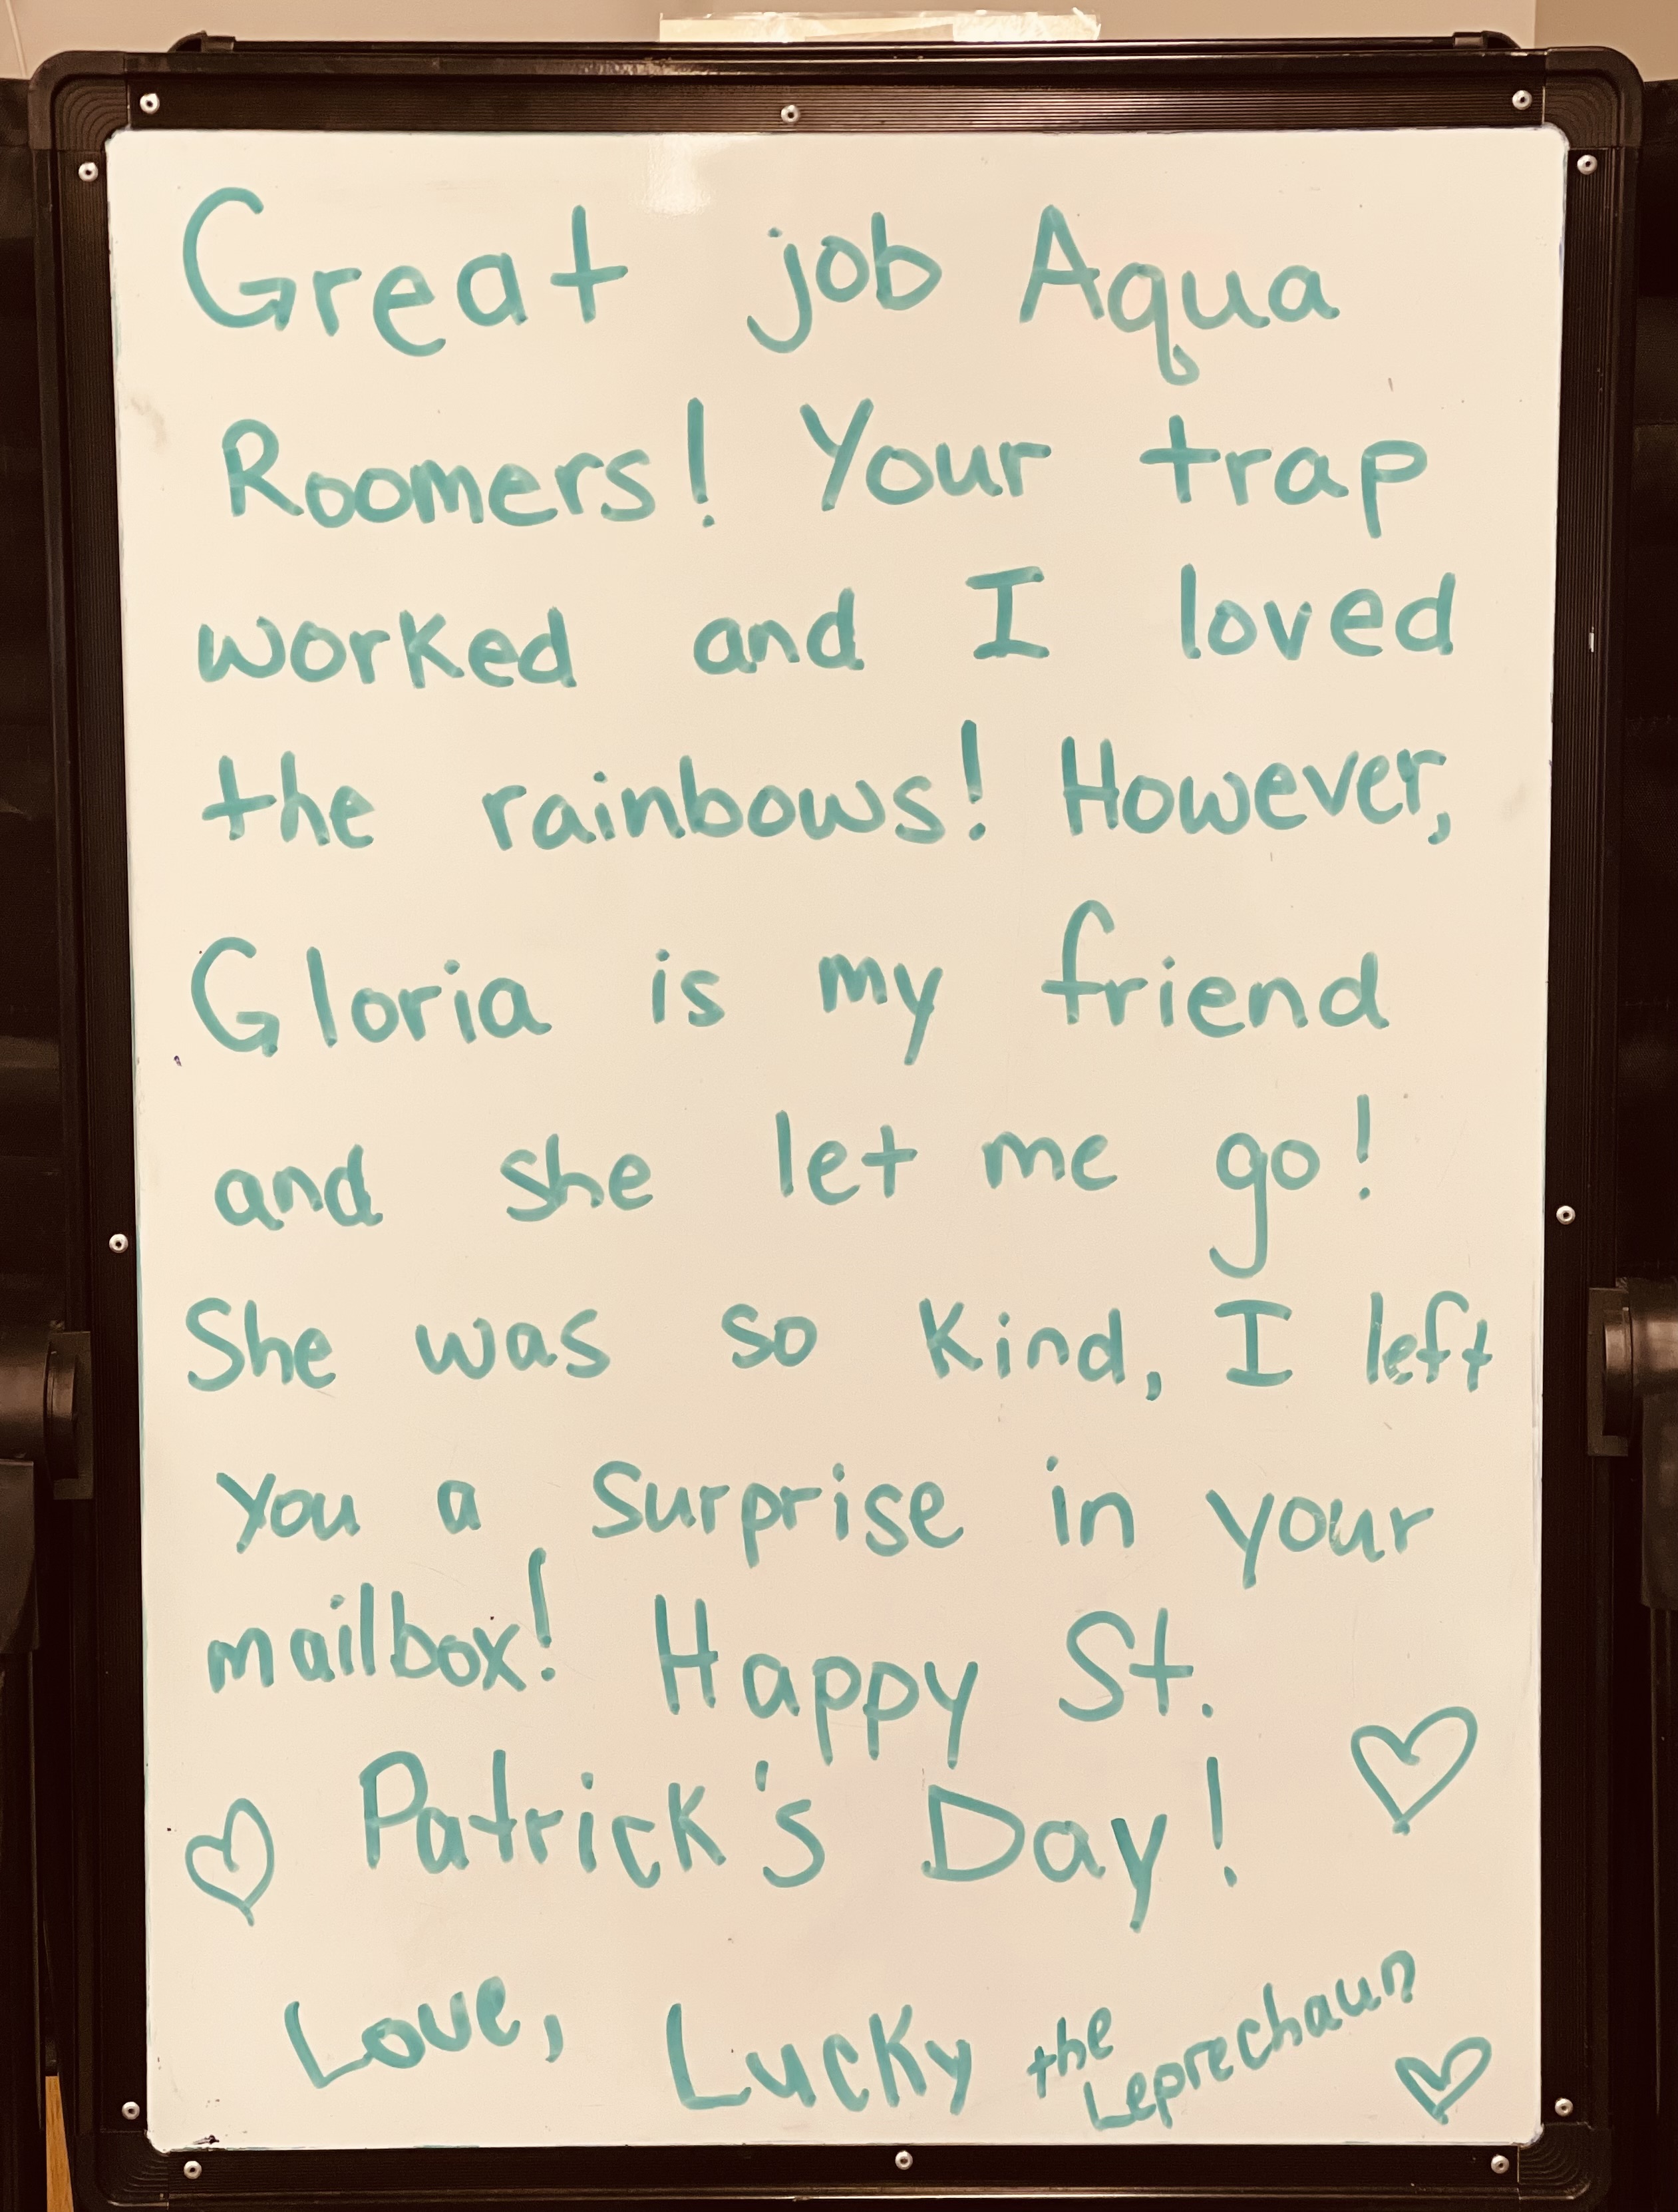 Great job Aqua
Roomers! Your trap
worked and I loved
the rainbows! However,
Gloria is my friend
and she let me go!
She was so kind, I left
you a surprise in your
mailbox! Happy St.
Patrick's Day!
Love, Lucky the Leprechaun